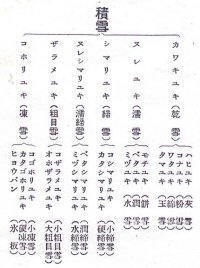 積雪
カワキユキ（乾雪）
ハヒユキ 灰雪
コナユキ 粉雪
ワタユキ 綿雪
タマユキ 玉雪
ヌレユキ（濡雪）
モチユキ 餅雪
ベタユキ 潤雪
ミヅユキ 水雪
シマリユキ（締雪）
コシマリユキ 小締雪
カタシマリユキ 硬締雪
ヌレシマリユキ（濡締雪）
ベタシマリユキ 潤締雪
ミヅシマリユキ 水締雪
ザラメユキ（粗目雪）
コザラメユキ 小粗目雪
オホザラメユキ 大粗目雪
コホリユキ（凍雪）
コゴホリユキ 小凍雪
カタゴホリユキ 硬凍雪
ヒョウバン 氷板